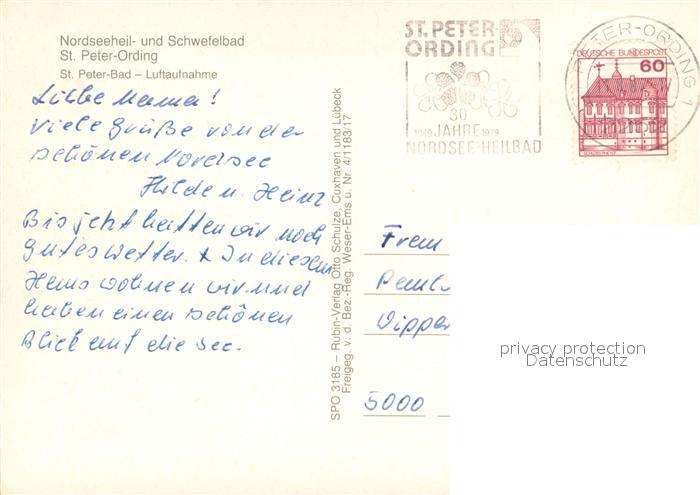 Nordseeheil- und Schwefelbad
St. Peter-Ording
St. Peter-Bad – Luftaufnahme
Liebe Mama!
viele Grüße von der
schönen Nordsee
Hilde u. Heinz
Bis jetzt hatten wir noch
gutes Wetter. x In diesem
Haus wohnen wir und
haben einen schönen
Blick auf die See.
SPO 3185 – Rubin-Verlag Otto Schulze, Cuxhaven und Lübeck
Freigeg. v. d. Bez.-Reg. Weser-Ems u. Nr. 4/1183/17
ST. PETER-
ORDING
30
1949 JAHRE 1979
NORDSEE-HEILBAD
PETER-ORDING 1
DEUTSCHE BUNDESPOST
60
Frau
Paul
Wipper
5000
privacy protection
Datenschutz